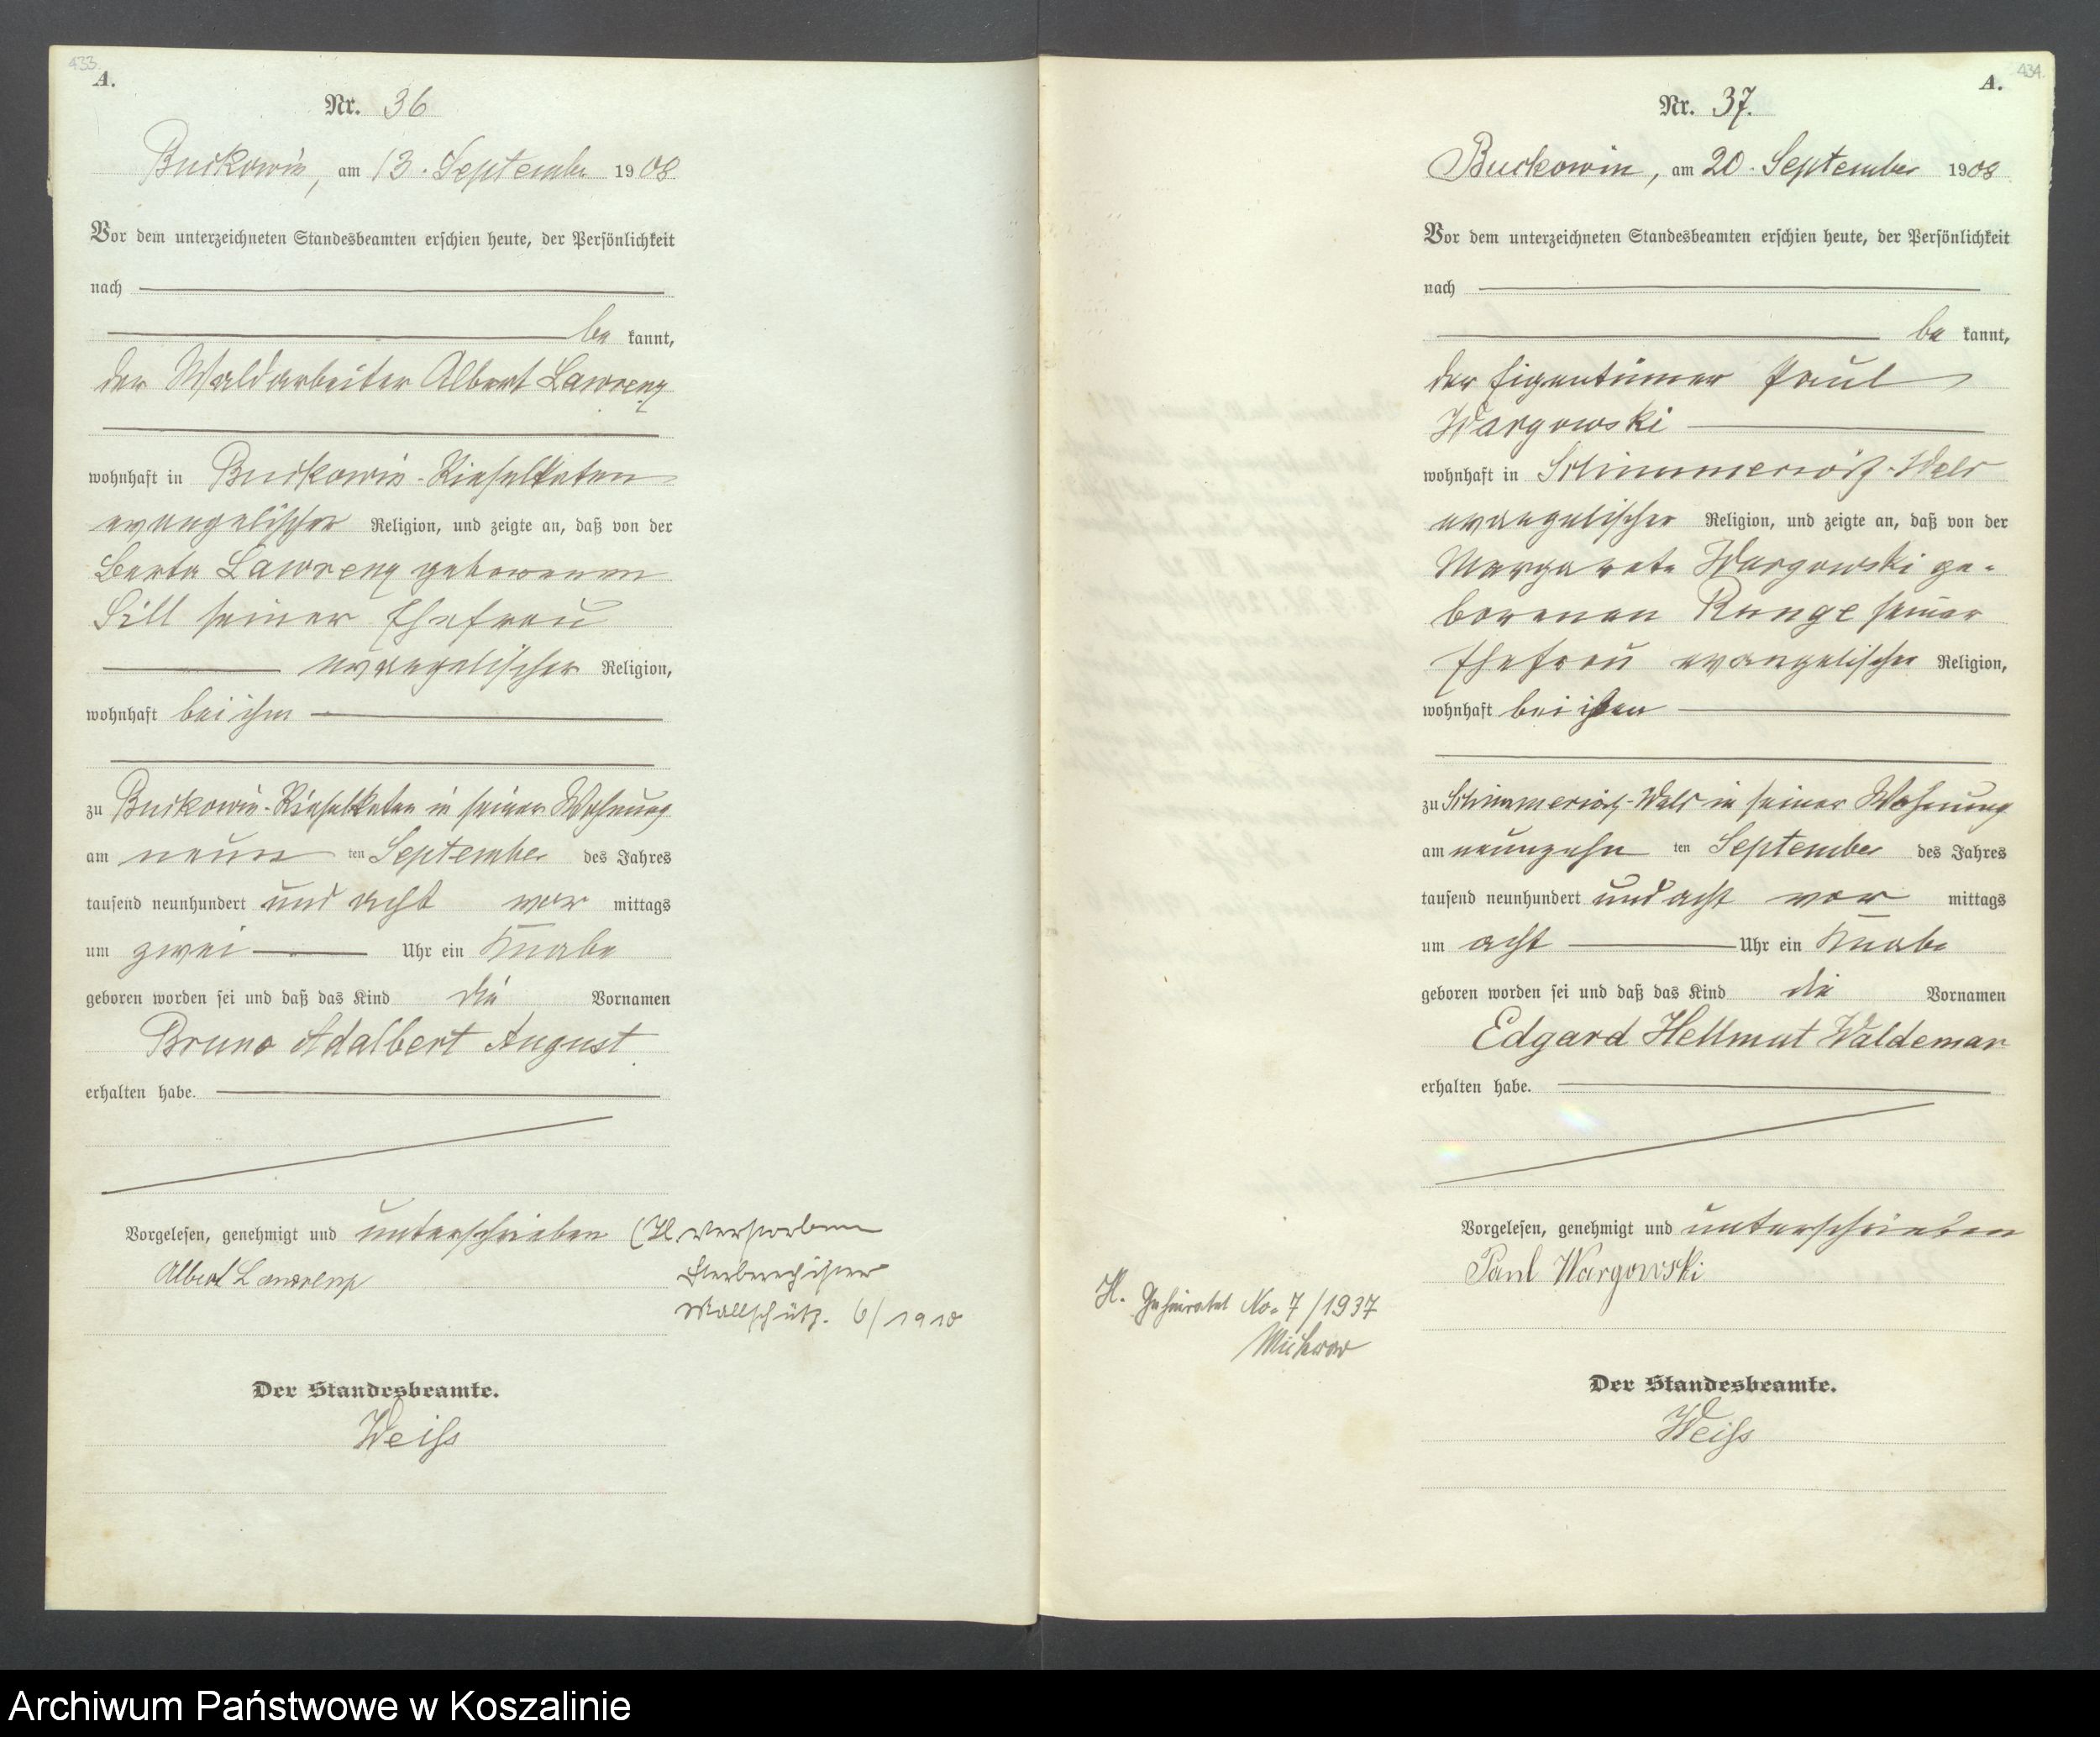 433.
A.
Nr. 36
Buckowin, am 13. September 1908
Vor dem unterzeichneten Standesbeamten erschien heute, der Persönlichkeit
nach
be kannt,
der Waldarbeiter Albert Lawrenz
wohnhaft in Buckowin-Kieselkaten
evangelischer Religion, und zeigte an, daß von der
Berta Lawrenz geborenen
Sill seiner Ehefrau
evangelischer Religion,
wohnhaft bei ihm
zu Buckowin-Kieselkaten in seiner Wohnung
am neun ten September des Jahres
tausend neunhundert und acht vor mittags
um zwei Uhr ein Knabe
geboren worden sei und daß das Kind die Vornamen
Bruno Adalbert August
erhalten habe.
Vorgelesen, genehmigt und unterschrieben
Albert Lawrenz
(H. verstorben
Sterberegister
Wallschütz. 6/1910
Der Standesbeamte.
Weiß
434.
A.
Nr. 37.
Buckowin, am 20. September 1908
Vor dem unterzeichneten Standesbeamten erschien heute, der Persönlichkeit
nach
be kannt,
der Eigentümer Paul
Wargowski
wohnhaft in Schimmerwitz-Wald
evangelischer Religion, und zeigte an, daß von der
Margarete Wargowski ge-
borenen Runge seiner
Ehefrau evangelischer Religion,
wohnhaft bei ihm
zu Schimmerwitz-Wald in seiner Wohnung
am neunzehn ten September des Jahres
tausend neunhundert und acht vor mittags
um acht Uhr ein Knabe
geboren worden sei und daß das Kind die Vornamen
Edgard Hellmut Waldemar
erhalten habe.
Vorgelesen, genehmigt und unterschrieben
Paul Wargowski
H. Geheiratet No. 7/1937
Mickrow
Der Standesbeamte.
Weiß
Archiwum Państwowe w Koszalinie